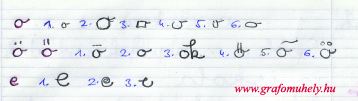 o 1. o 2. O 3. o 4. o 5. o 6. o
ö ő 1. ō 2. o 3. ok 4. ő 5. õ 6. ö
e 1. e 2. e 3. e
www.grafomuhely.hu